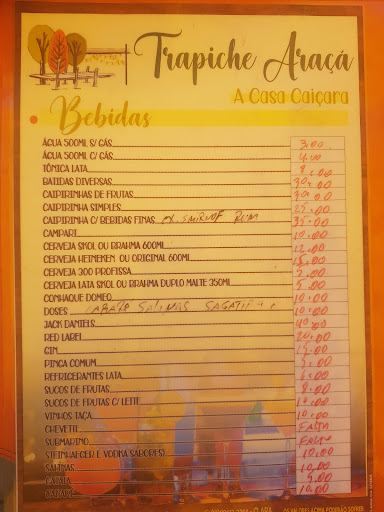 Trapiche Araçá
A Casa Caiçara
• Bebidas
ÁGUA 500ML S/ GÁS 3.00
ÁGUA 500ML C/ GÁS 4.00
TÔNICA LATA 8.00
BATIDAS DIVERSAS 30.00
CAIPIRINHAS DE FRUTAS 30.00
CAIPIRINHA SIMPLES 25.00
CAIPIRINHA C/ BEBIDAS FINAS SMIRNOF RUM 35.00
CAMPARI 10.00
CERVEJA SKOL OU BRAHMA 600ML 12.00
CERVEJA HEINEKEN OU ORIGINAL 600ML 15.00
CERVEJA 300 PROFISSA 5.00
CERVEJA LATA SKOL OU BRAHMA DUPLO MALTE 350ML 5.00
CONHAQUE DOMEQ 10.00
DOSES SALINAS 10.00
JACK DANIELS 40.00
RED LABEL 20.00
GIN 15.00
PINGA COMUM 5.00
REFRIGERANTES LATA 6.00
SUCOS DE FRUTAS 8.00
SUCOS DE FRUTAS C/ LEITE 10.00
VINHOS TAÇA 10.00
CHEVETTE FALTA
SUBMARINO FALTA
STEINHAEGER E VODKA SABORES) 10.00
SALINAS 10.00